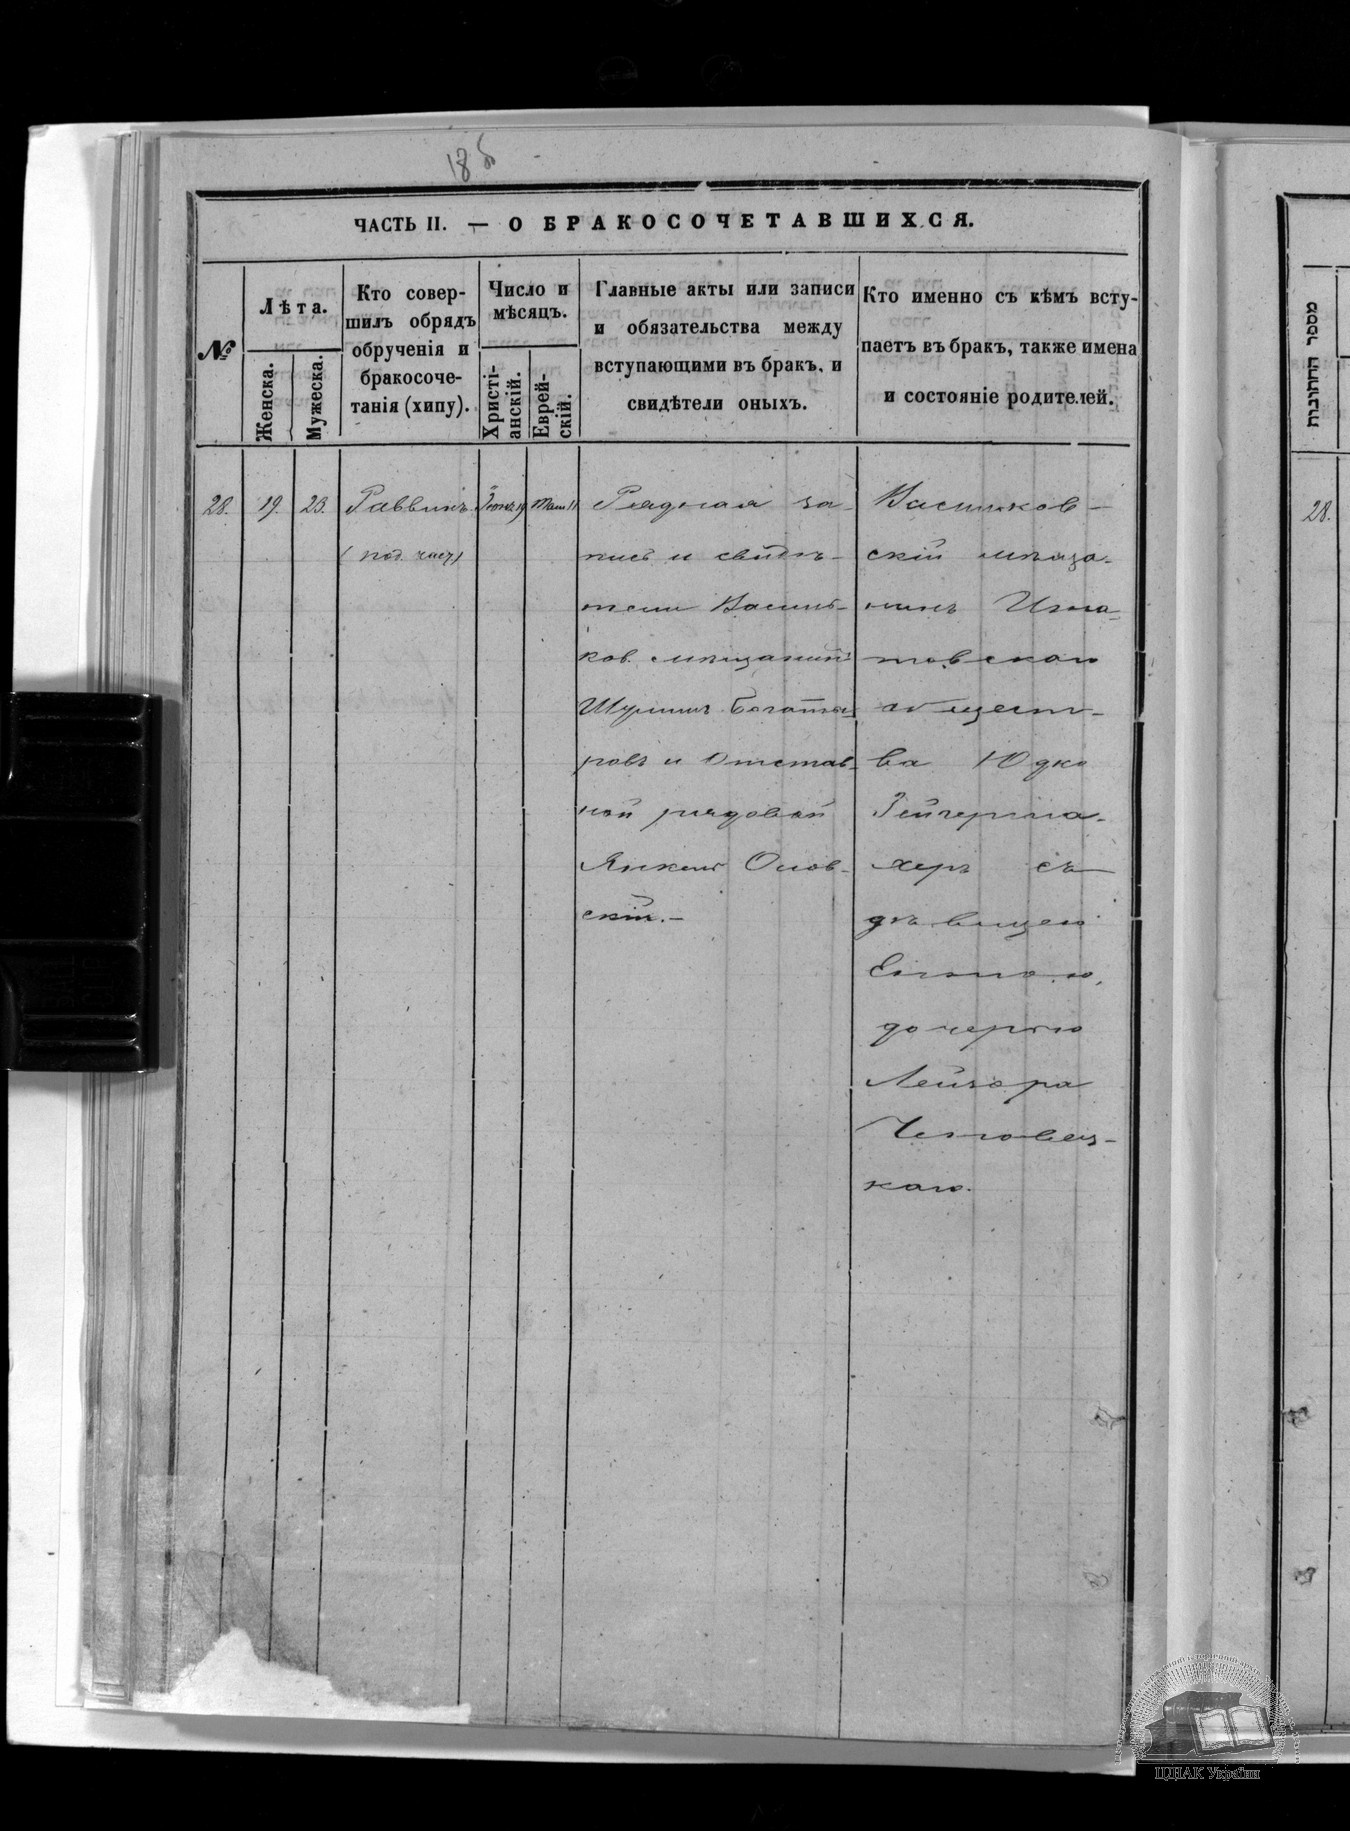 18
ЧАСТЬ II. — О БРАКОСОЧЕТАВШИХСЯ.
№
Лѣта.
Женска.
Мужеска.
Кто совер-
шилъ обрядъ
обрученія и
бракосоче-
танія (хипу).
Число и
мѣсяцъ.
Христі-
анскій.
Еврей-
скій.
Главные акты или записи
и обязательства между
вступающими въ бракъ, и
свидѣтели оныхъ.
Кто именно съ кѣмъ всту-
паетъ въ бракъ, также имена
и состояніе родителей.
28.
19.
23.
Раввинъ
Іюнь 19
Там 11
Рядная за-
пись и свидѣ-
тели Василь-
ков. мѣщанинъ
Шулимъ Богаты-
ровъ и Отстав-
ной рядовой
Янкель Олов-
скій.—
Васильков-
скій мѣща-
нинъ Игна-
товскаго
общест-
ва Юдко
Зейгерма-
херъ съ
дѣвицею
дочерью
Лейзора
каго.
מספר החתונות
28.
ЦДІАК України